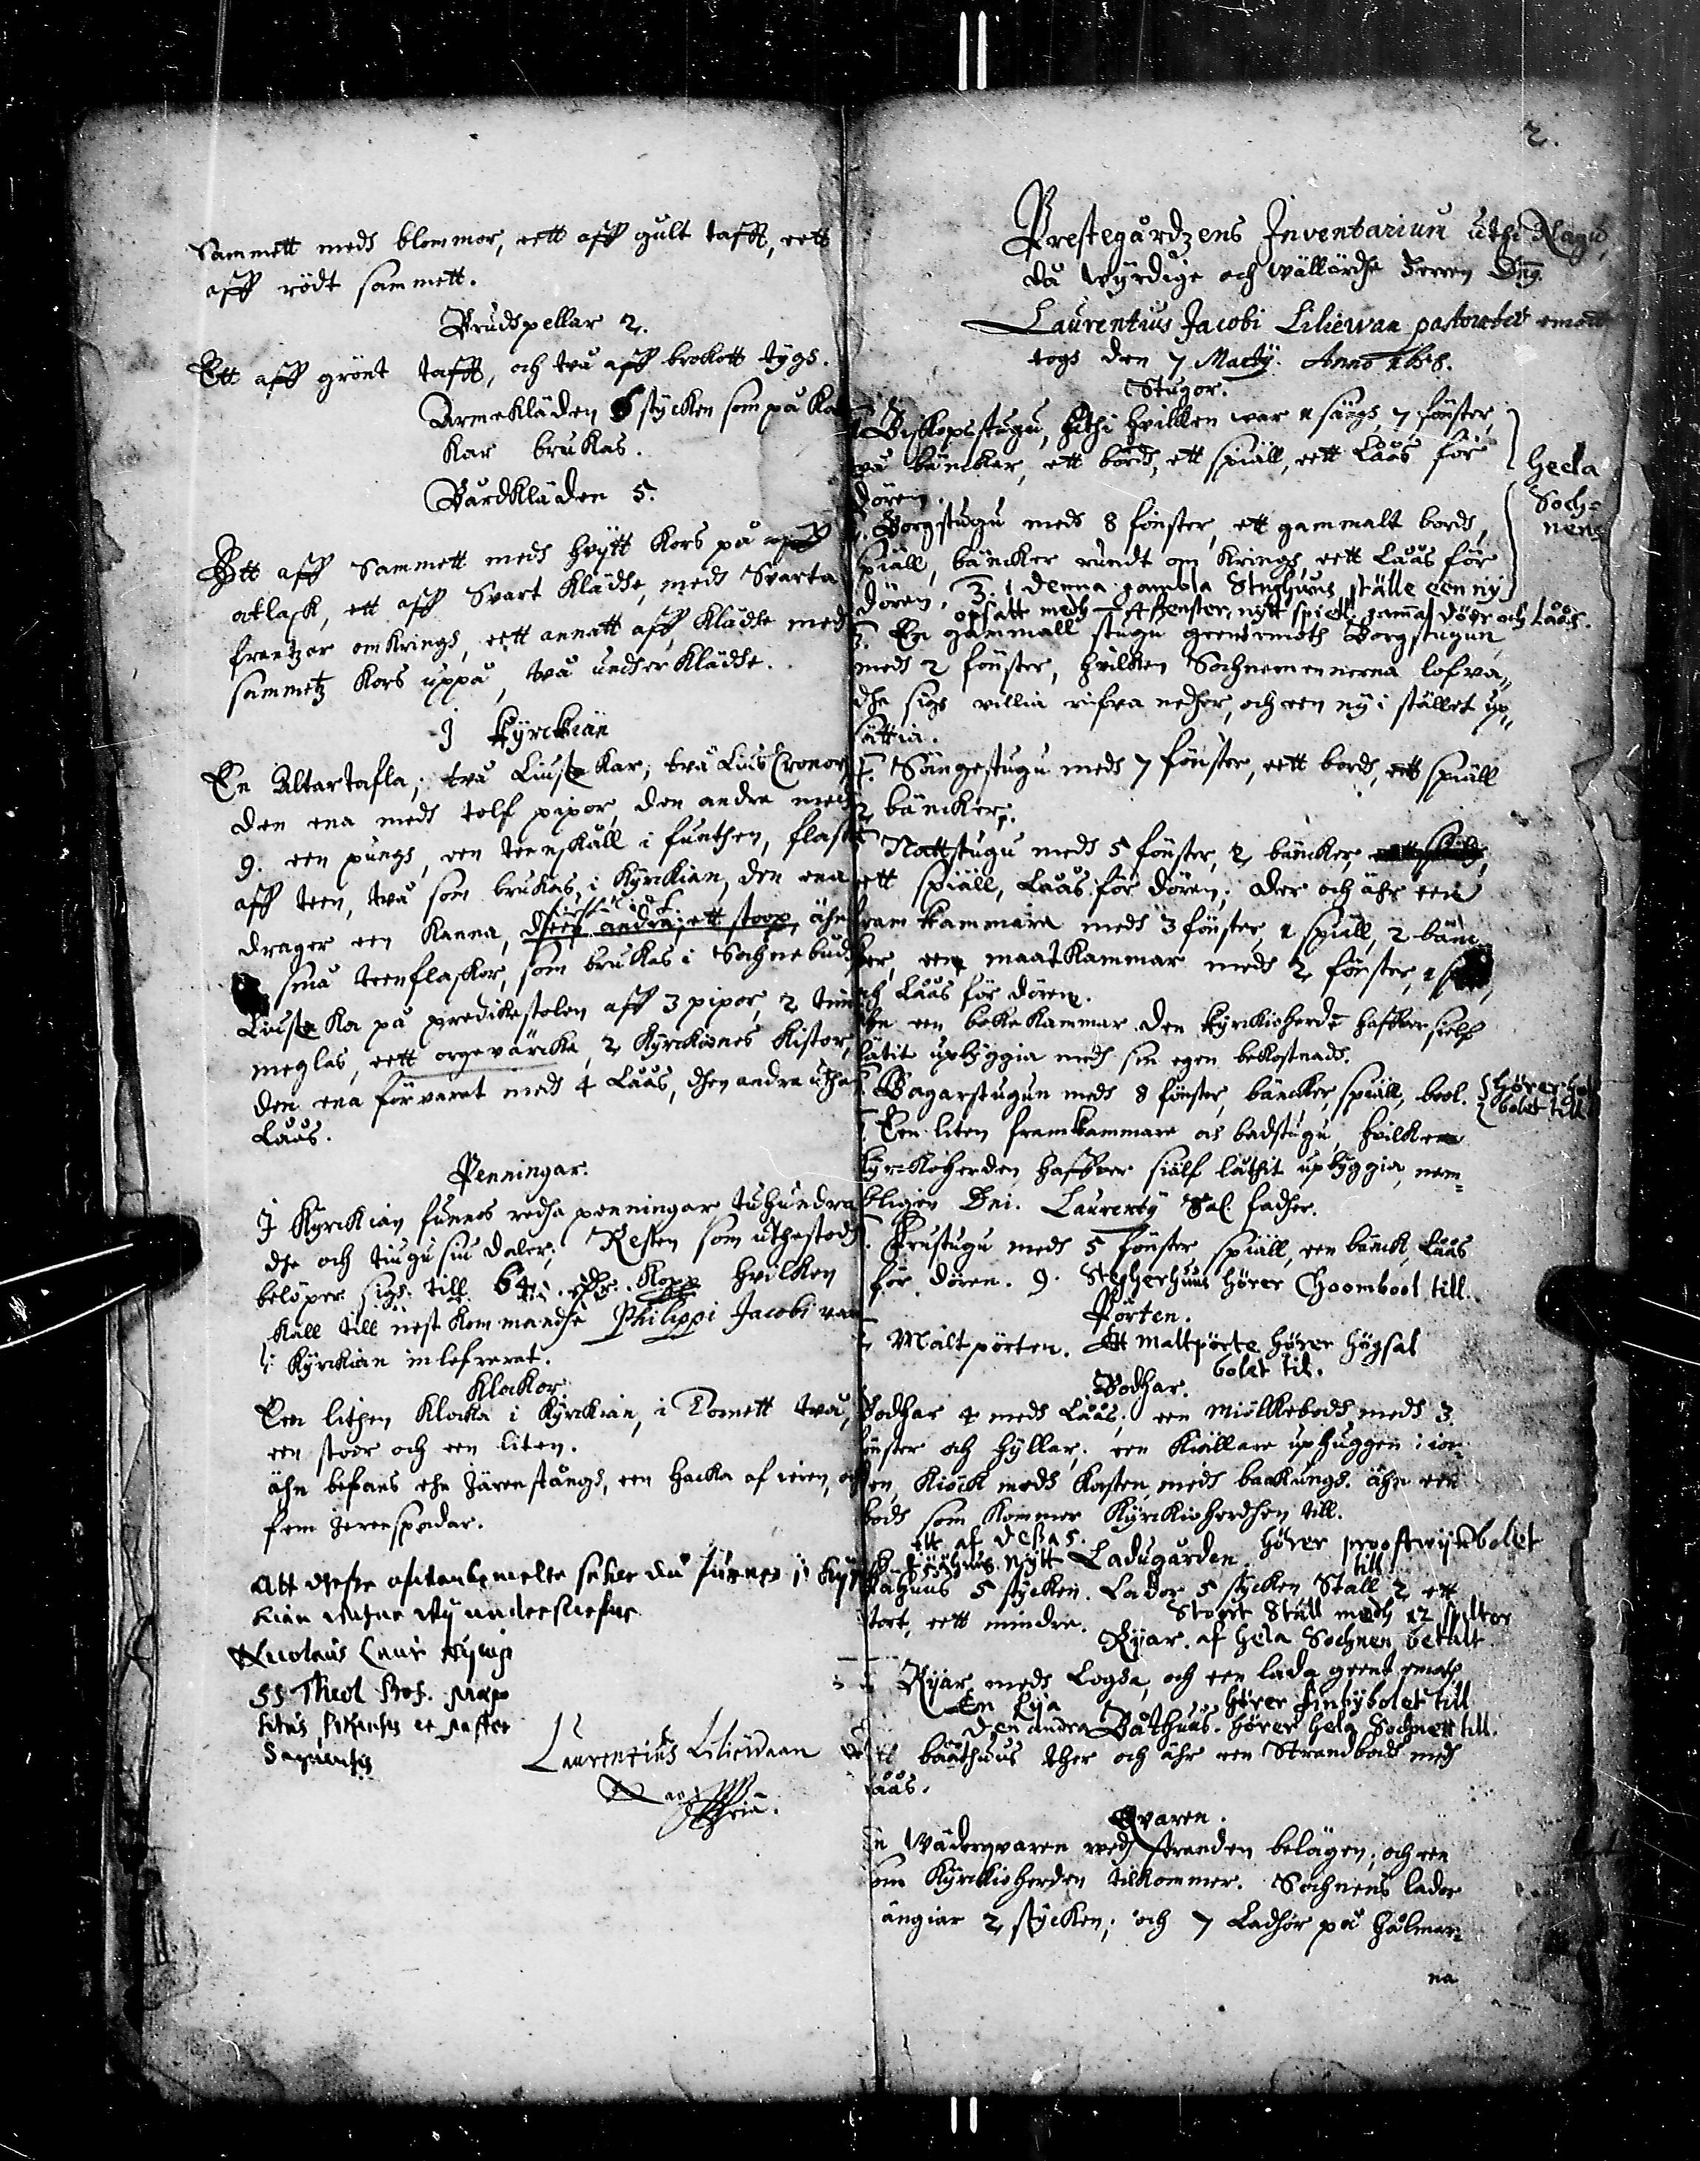 Sammett medh blommor, ett aff gult tafft, ett
aff rödt sammett.
Brudepellar 2.
Ett aff grönt tafft, och två aff brokott tygh.
Armekläden 6 stycken som på Kal
kar brukas.
Bårdkläden 5.
Ett aff Sammett medh hvytt Kors på aff
atlask, ett aff Svart Klädhe, medh Svarta
frantzer omkringh, ett annatt aff Klädhe medh
sammetz Kors uppå, två underklädhe.
J Kyrckian
En Altartafla; två Liusekar; två Lius Cronor,
den ena medh tolf pipor, den andra medh
9. een pungh, een teenskåll i funthen, flaskor
aff teen, två som brukas i Kyrckian, den ena
drager een Kanna, dhen andra; ett stoop, ähn
små teenflaskor, som brukas i Sochnebudh
Liuseka på predikestolen aff 3 pipor, 2 tim
meglas, ett orgevärcke, 2 Kyrckiones Kistor,
den ena förvarat medh 4 Låås, dhen andra uthan
Låås.
Penningar.
J Kyrckian funnos redha penningar tuhundra
dhe och tiugu siu daler; Resten som uthestodh
belöper sigh till 64 dlr. Kopp hvilken
skall till nest kommandhe Philippi Jacobi vara
i Kyrckian inlefrerat.
Klockor.
Een lithen Klocka i Kyrckian, i Tornett två,
een stoor och een liten.
ähn befans ehn järnstångh, een hacka af ieren, och
fem ierenspadar.
Att dhesse ofvanbemelte saker då funnes i Kyrc
kian vithne wij underskrefne
Nicolaus Laur Nycop
SS Theol Prof. præpo
situs et pastor
Laurentius Liliewaan
2.
Prestegårdzens Inventarium uthi Nagu,
då wyrdige och wällärdhe Herren Dng
Laurentius Jacobi Liliewan pastoratet emott
togh den 7 Marty. Anno 1658.
Stugor.
1 Biskopsstugu, Uthi hvilken war 1 sängh, 7 fönster,
två bäncker, ett bordh, ett spiäll, ett Låås för
dören.
Heela
Soch=
nens
2. Borgstugu medh 8 fönster, ett gammalt bordh,
spiäll, bäncker rundt om kringh, ett Låås för
dören. 3. i denna gambla Stughuus ställe een ny
opsatt medh 4 fenster, nytt spiell, gamal döör och låås.
3. En gammall stugu geentemoth Borgstugun,
medh 2 fönster, hvilken Sochnemennerna lofva,,
dhe sigh villia rifva nedher, och een ny i stället up,,
sättia.
4. Sängestugu medh 7 fönster, ett bordh, ett spiäll
2 bäncker.
5 Nattstugu medh 5 fönster, 2 bäncker,
ett spiäll, Låås för dören; der och ähr een
fram kammare medh 3 fönster, 1 spiäll, 2 bän
ker, een maatkammar medh 2 fönster,
och Låås för dören.
een bokekammar den Kyrckioherde haffver sielf
låtit upbyggia medh sin egen bekostnadh.
6. Bagarstugun medh 8 fönster, bäncker, spiäll, bool. hörer
bolet till
7. Een liten framkammare och badstugu, hvilken
Kyrckoherden haffver siälf låthit upbyggia, nem=
bligen Dni. Laurenty Sal. fadher.
8. Frustugu medh 5 fönster, spiäll, een bänck, Låås
för dören. 9. Stekerhuus hörer Choombool till.
Pörten.
Måltpörten. Ett maltpörte hörer högsal
bolet til.
Bodhar.
Bodhar 4 medh Låås; een miölkebodh medh 3
fönster och hyllar. een Kiällare uphuggen i ior
den, Kiöck medh Korsten, medh baakungh. ähn een
bodh som kommer Kyrckioherdhen till.
ett af dessa 5.
Fäähus nytt Ladugården. hörer prooftwijkbolet
till
Fähuus 5 stycken. Lador 5 stycken Stall 2 ett
stort, ett mindre. Stoort Stall medh 12 spiltor
Ryiar. af hela Sochnen betalt
2 Ryiar medh Logha, och een lada geent emoth
En Rya hörer finbybolet till
Den andra Båthuus. hörer hela Sochnett till.
Ett båthuus ther och ähr een Strandbodh medh
Låås.
Qvaren.
En Väderqvaren vedh stranden belägen; och een
som Kyrckioherden tilkommer. Sochnens lador
ängiar 2 stycken; och 7 Ladhor på hålmar=
na